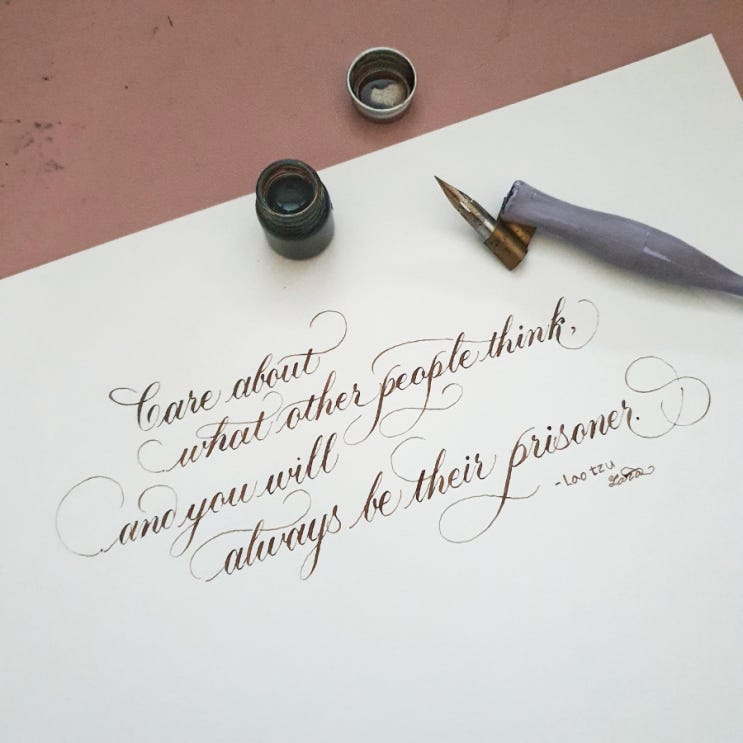 Care about
what other people think,
and you will
always be their prisoner.
- Lao tzu